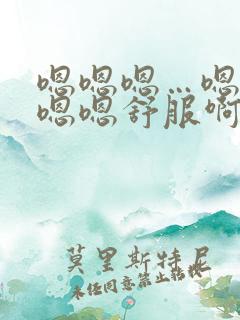 嗯嗯嗯…嗯
嗯嗯舒服啊
莫里斯特尼
未经同意禁止转载